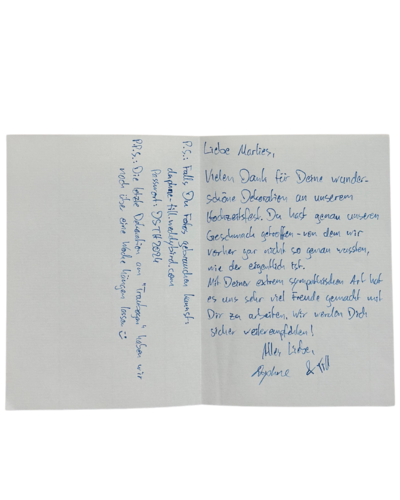 Liebe Marlies,
Vielen Dank für Deine wunder-
schöne Dekoration an unserem
Hochzeitsfest. Du hast genau unseren
Geschmack getroffen - von dem wir
vorher gar nicht so genau wussten,
wie der eigentlich ist.
Mit Deiner extrem sympathischen Art hat
es uns sehr viel Freude gemacht mit
Dir zu arbeiten, wir werden Dich
sicher weiterempfehlen!
Alles Liebe,
& Till
P.S.: Falls Du Fotos gebrauchen kannst:
Passwort: DSTH2024
P.P.S.: Die letzte Dekoration am "Traubogen" haben wir
noch über eine Woche hängen lassen ☺